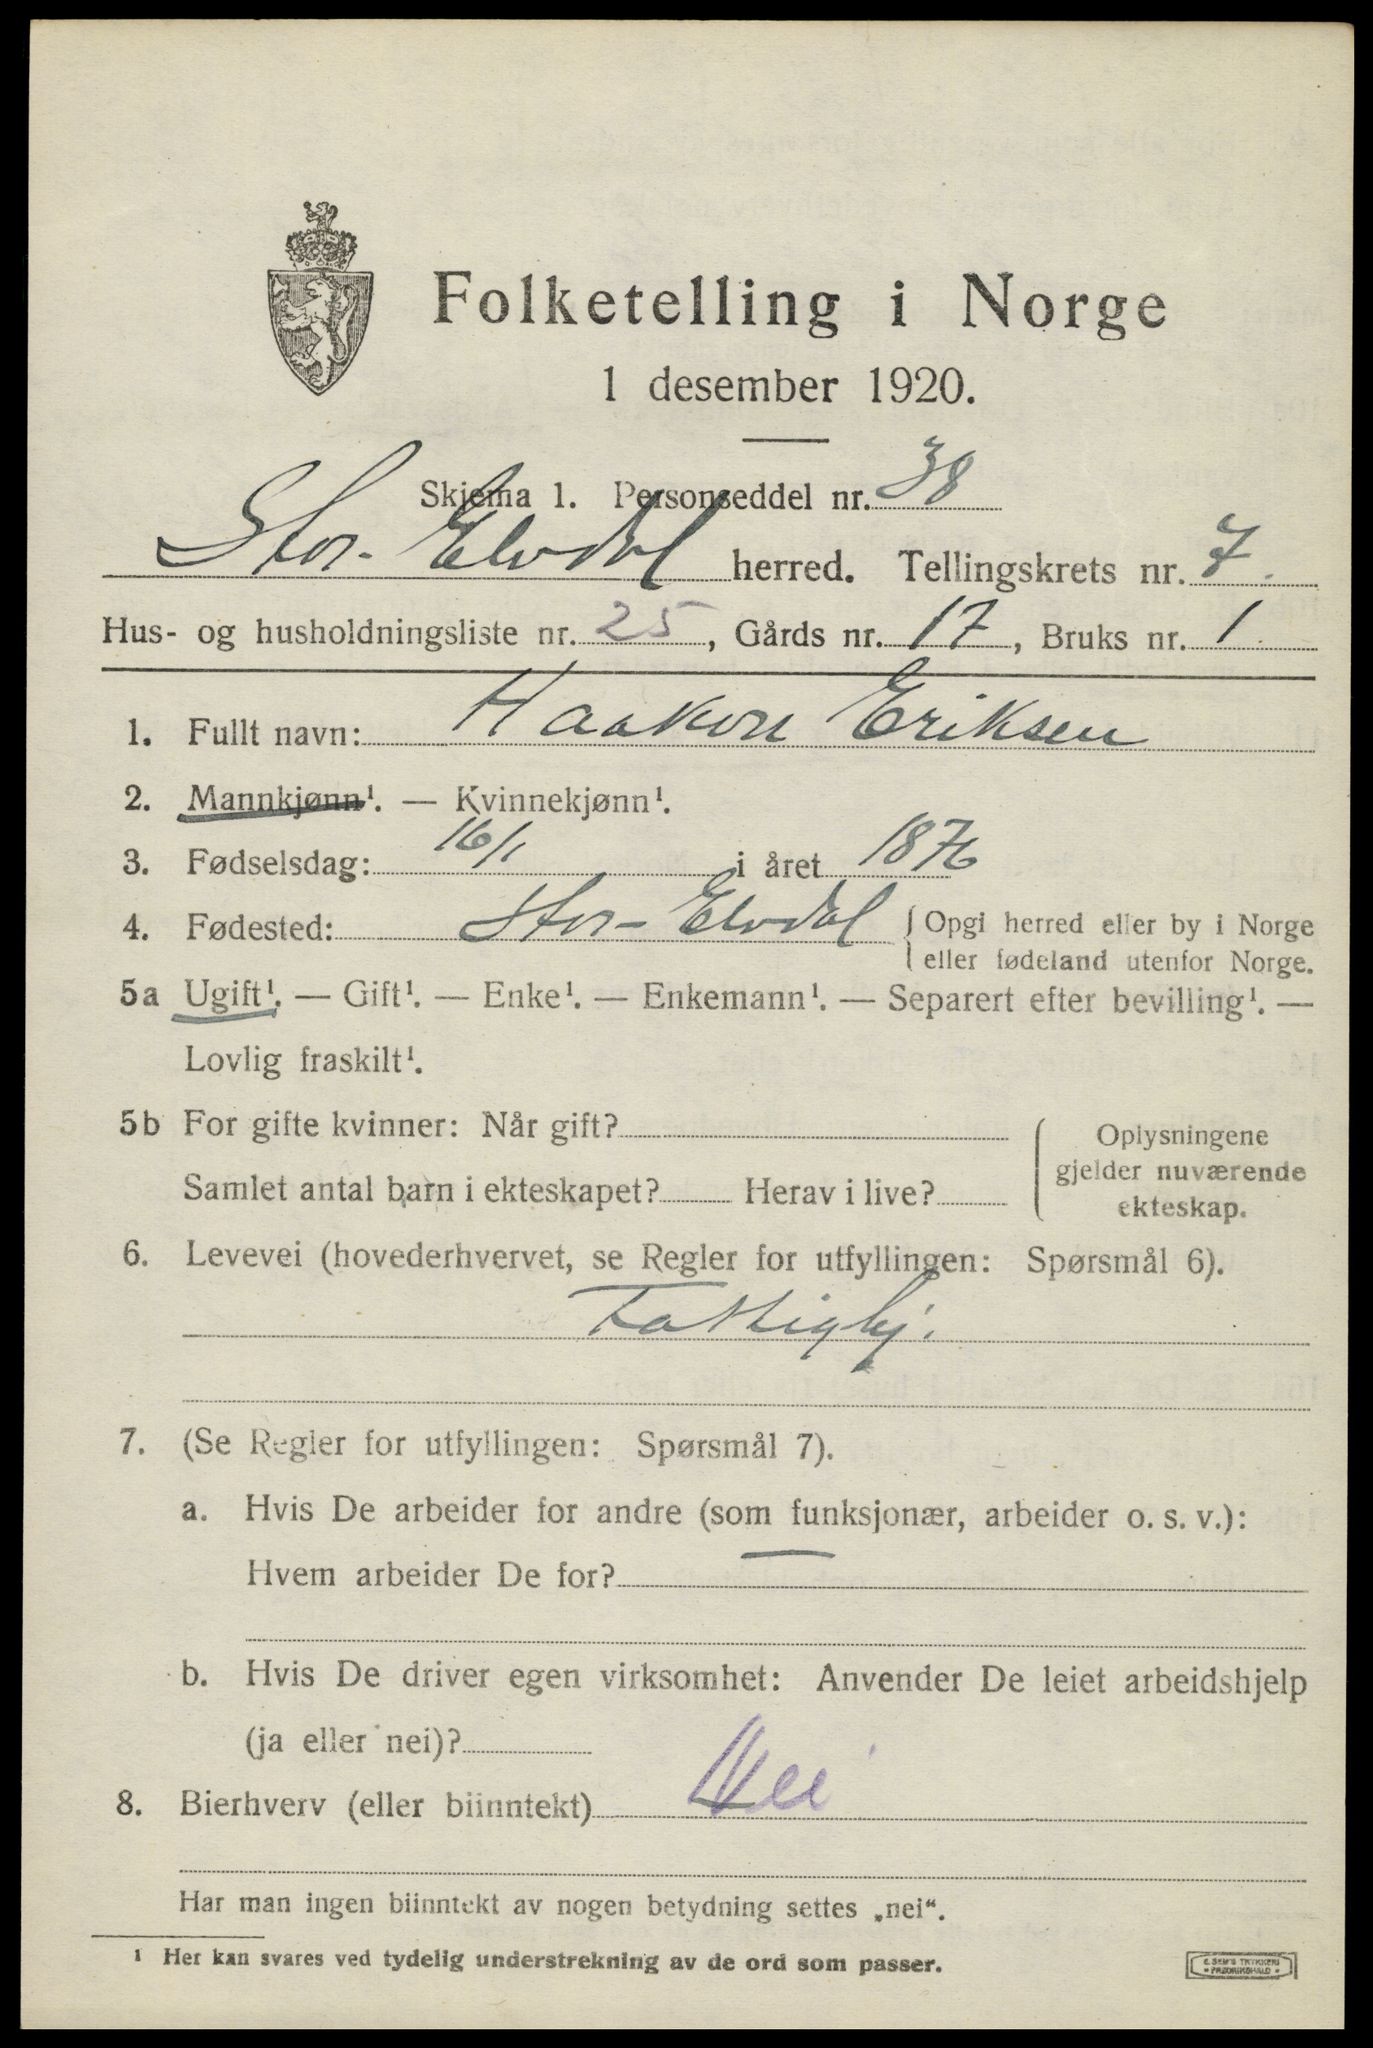 Folketelling i Norge
1 desember 1920.
Skjema 1. Personseddel nr. 38
Stor-Elvdal herred. Tellingskrets nr. 7.
Hus- og husholdningsliste nr. 25, Gårds nr. 17, Bruks nr. 1
1. Fullt navn: Haakon Eriksen
2. Mannkjønn¹. — Kvinnekjønn¹.
3. Fødselsdag: 16/1 i året 1876
4. Fødested: Stor-Elvdal { Opgi herred eller by i Norge
eller fødeland utenfor Norge.
5a Ugift¹. — Gift¹. — Enke¹. — Enkemann¹. — Separert efter bevilling¹. —
Lovlig fraskilt¹.
5b For gifte kvinner: Når gift?
Samlet antal barn i ekteskapet? Herav i live?
{ Oplysningene
gjelder nuværende
ekteskap.
6. Levevei (hovederhvervet, se Regler for utfyllingen: Spørsmål 6).
Fattighj.
7. (Se Regler for utfyllingen: Spørsmål 7).
a. Hvis De arbeider for andre (som funksjonær, arbeider o. s. v.):
Hvem arbeider De for? —
b. Hvis De driver egen virksomhet: Anvender De leiet arbeidshjelp
(ja eller nei)?
8. Bierhverv (eller biinntekt) Nei
Har man ingen biinntekt av nogen betydning settes „nei“.
¹ Her kan svares ved tydelig understrekning av de ord som passer.
E. SEM'S TRYKKERI
• FREDRIKSHALD •